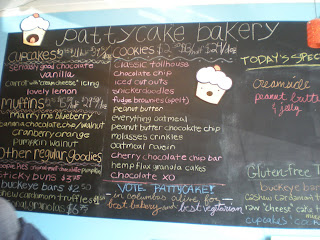 pattycake bakery
cupcakes
sensibly good chocolate
vanilla
Carrot with "cream cheese" icing
lovely lemon
muffins
marry me blueberry
banana chocolate chip/walnut
cranberry orange
Pumpkin walnut
Other regular goodies
sticky buns $3.75
buckeye bars $2.50
cashew cardamom truffles
cookies
Classic tollhouse
Chocolate chip
iced cutouts
snickerdoodles
fudge brownies (spelt)
peanut butter
everything oatmeal
peanut butter chocolate chip
molasses crinkles
oatmeal raisin
cherry chocolate chip bar
hemp flax granola cakes
Chocolate XO
VOTE PATTYCAKE!
in columbus alive for
best bakery and best vegetarian
TODAY'S SPEC
Creamsicle
peanut butte
& jelly
Gluten-free
buckeye bars
cashew cardamom t
raw "cheese" cake
cupcakes!